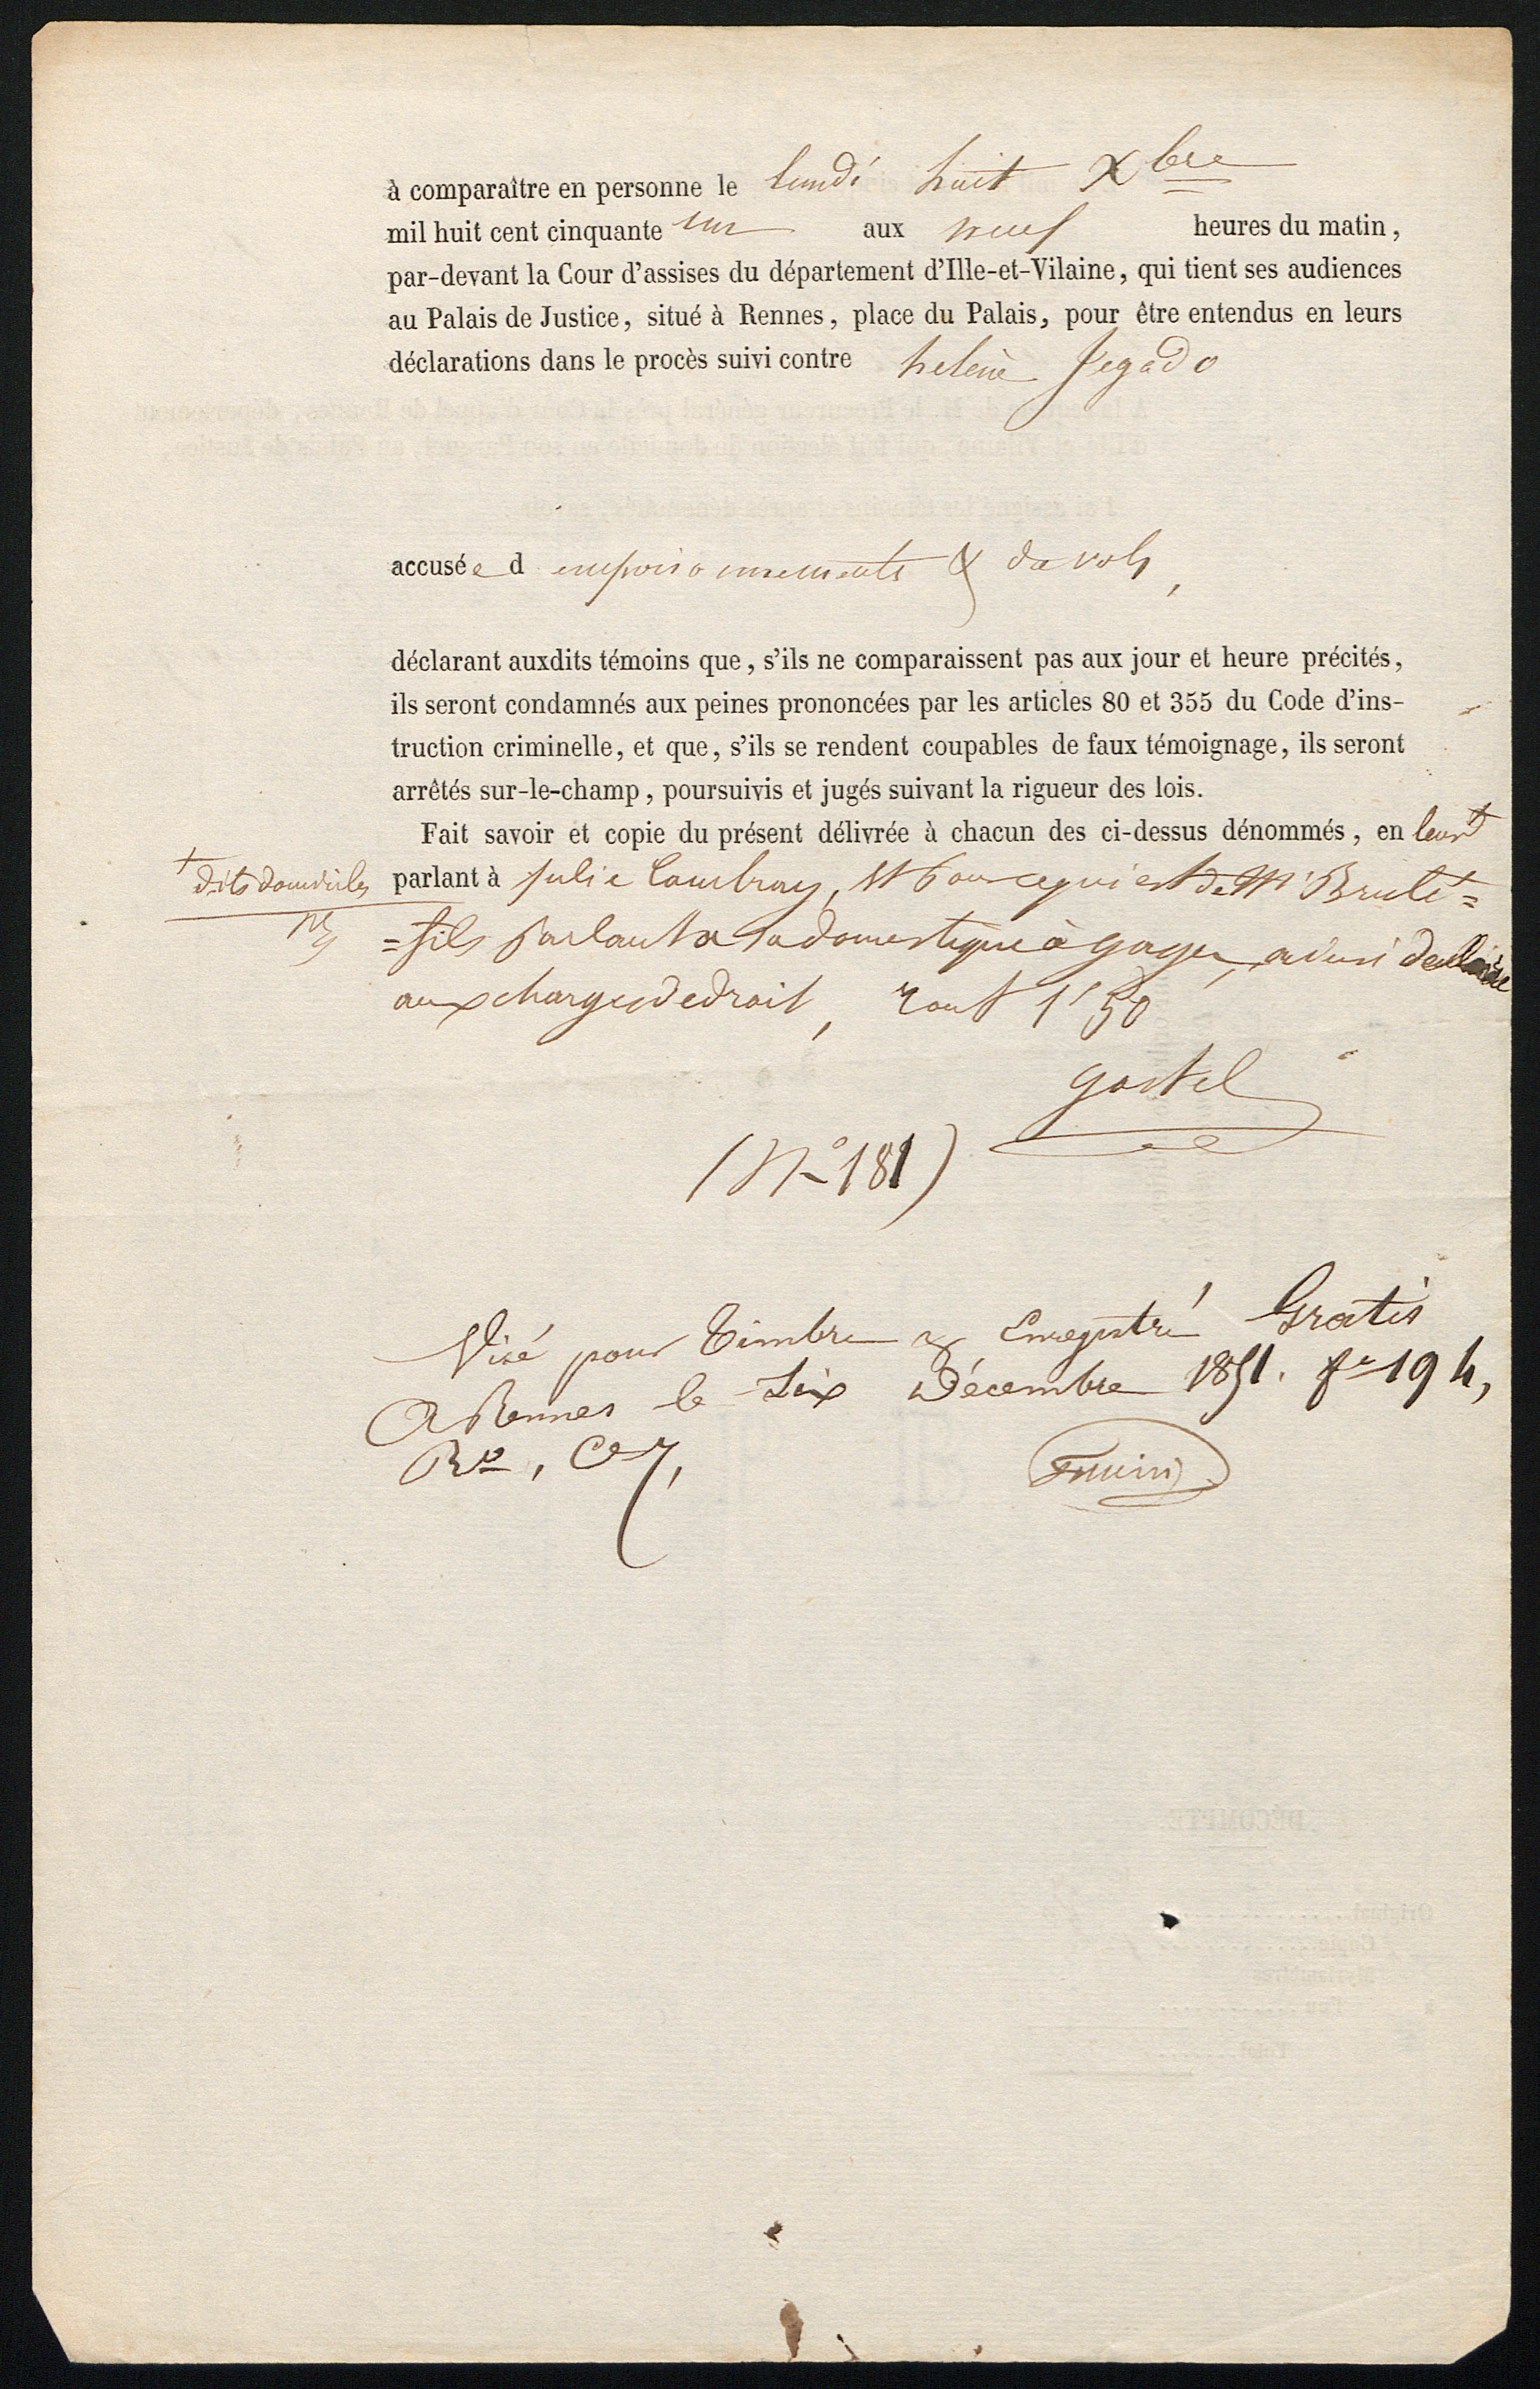 à comparaître en personne le lundi huit Xbre
mil huit cent cinquante un aux neuf heures du matin,
par-devant la Cour d'assises du département d'Ille-et-Vilaine, qui tient ses audiences
au Palais de Justice, situé à Rennes, place du Palais, pour être entendus en leurs
déclarations dans le procès suivi contre helène Jegado
accusée d empoisonnements & de vols,
déclarant auxdits témoins que, s'ils ne comparaissent pas aux jour et heure précités,
ils seront condamnés aux peines prononcées par les articles 80 et 355 du Code d'ins-
truction criminelle, et que, s'ils se rendent coupables de faux témoignage, ils seront
arrêtés sur-le-champ, poursuivis et jugés suivant la rigueur des lois.
Fait savoir et copie du présent délivrée à chacun des ci-dessus dénommés, en leurs +
+ dits domiciles
parlant à Julie Cambray, et pour ce qui est de Mr Bruté =
= fils parlant a sa domestique à gages, ainsi
aux charges de droit, Cout 1f 50
gastel
(N° 181)
Visé pour Timbre & Enregistré Gratis
A Rennes le Six Décembre 1851. fo 194,
Ro, Ce 7,